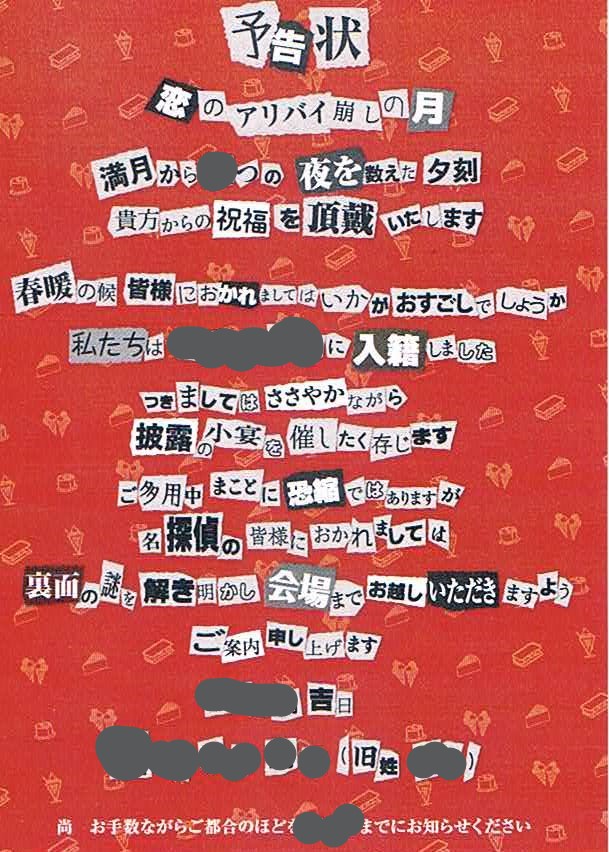 予告状
恋のアリバイ崩しの月
満月から つの 夜を数えた夕刻
貴方からの祝福を頂戴いたします
春暖の候 皆様におかれましてはいかがおすごしでしょうか
私たちは に入籍しました
つきましてはささやかながら
披露の小宴を催したく存じます
ご多用中 まことに恐縮ではありますが
名探偵の皆様におかれましては
裏面の謎を解き明かし会場までお越しいただきますよう
ご案内申し上げます
吉日
(旧姓 )
尚 お手数ながらご都合のほどを までにお知らせください